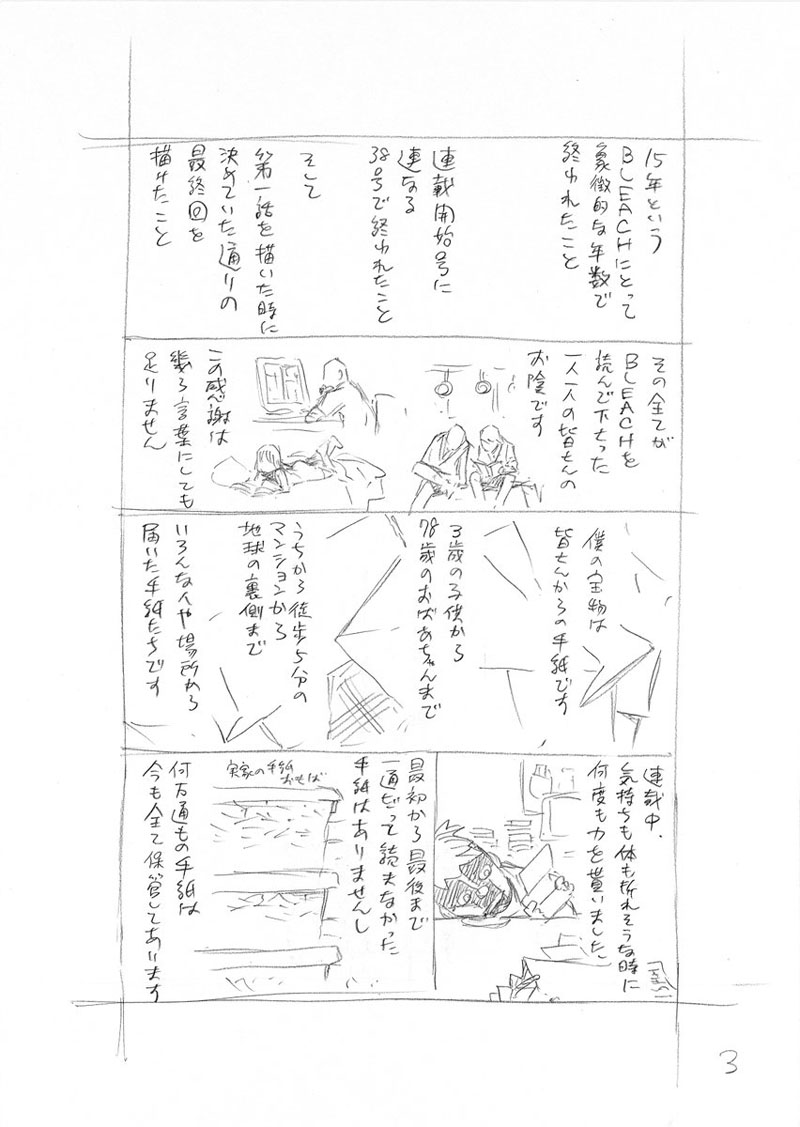 15年という
BLEACHにとって
象徴的な年数で
終われたこと
連載開始号に
連なる
38号で終われたこと
そして
第一話を描いた時に
決めていた通りの
最終回を
描けたこと
その全てが
BLEACHを
読んで下さった
一人一人の皆さんの
お陰です
この感謝は
幾ら言葉にしても
足りません
僕の宝物は
皆さんからの手紙です
3歳の子供から
78歳のおばあちゃんまで
うちから徒歩5分の
マンションから
地球の裏側まで
いろんな人や場所から
届いた手紙たちです
連載中、
気持ちも体も折れそうな時に
何度も力を貰いました
最初から最後まで
一通だって読まなかった
手紙はありませんし
実家の手紙
おもば
何万通もの手紙は
今も全て保管してあります
3